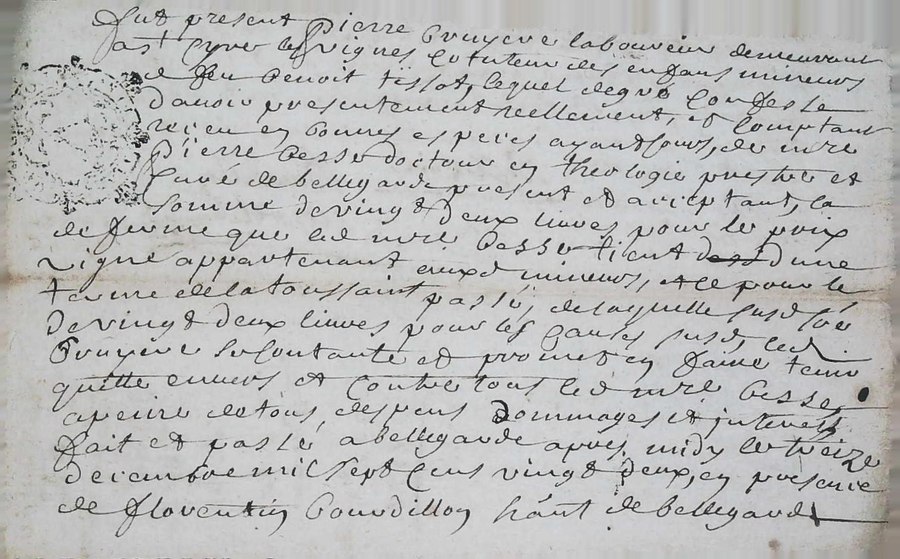 fut present pierre Bruyere laboureur demeurant
a st Cyre les vignes Cotuteur des enfans mineurs
de feu Benoit tissot, lequel de gré Confesse
d'avoir presentement reellement, et Comptant
recu en bonnes especes ayant cours, de mre
pierre Besse docteur en theologie prestre et
Curé de bellegarde present et acceptant, la
somme de vingt deux livres pour le prix
de ferme que led mre Besse tient d'une
vigne appartenant auxd mineurs, et ce pour le
terme de la toussaint passé, de laquelle susd
de vingt deux livres pour les Causes susd, led
Bruyere se Contante et promet en faire tenir
quitte envers et Contre tous led mre Besse
a peine de tous despens dommages et interests
fait et passé a bellegarde apres midy le treize
decembre mil sept Cens vingt deux, en presence
de florentin Bourdillon hānt de bellegarde